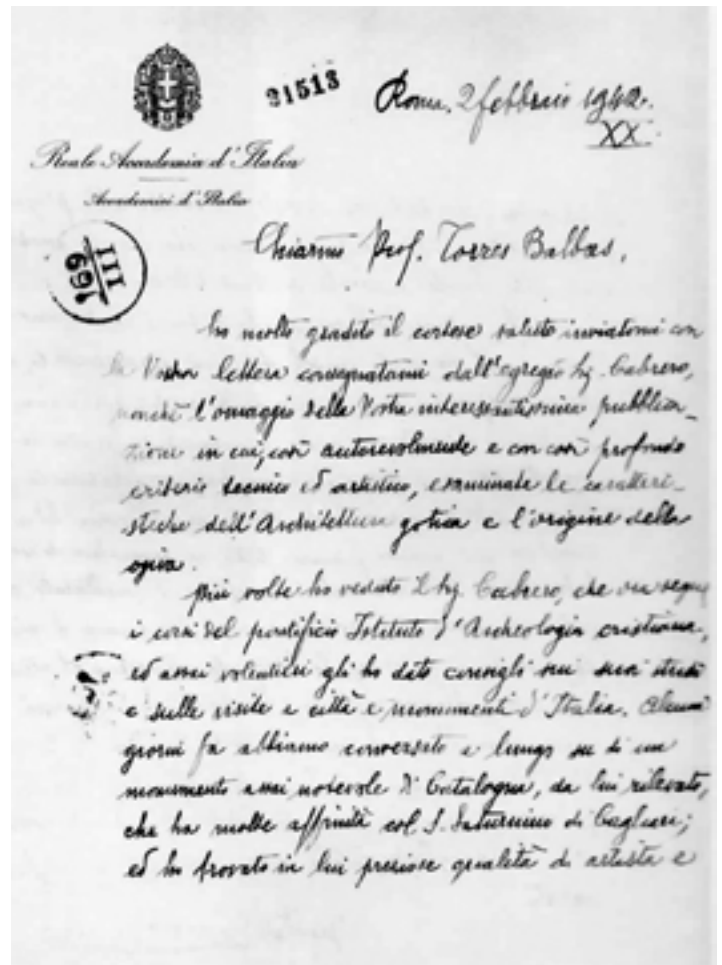 21513
Roma, 2 febbraio 1942.
XX.
Reale Accademia d'Italia
Accademici d'Italia
III
169
Chiarmo Prof. Torres Balbas,
ho molto gradito il cortese saluto inviatomi con
la Vostra lettera consegnatami dall'egregio Sig. Cabrero,
nonchè l'omaggio della Vostra interessantissima pubblica-
zione in cui, così autorevolmente e con così profondo
criterio tecnico ed artistico, esaminate le caratteri-
stiche dell'Architettura gotica e l'origine della
ogiva.
Più volte ho veduto il Sig. Cabrero, che ora segue
i corsi del pontificio Istituto d'Archeologia cristiana,
ed assai volentieri gli ho dato consigli sui suoi studi
e sulle visite a città e monumenti d'Italia. Alcuni
giorni fa abbiamo conversato a lungo su di un
monumento assai notevole di Catalogna, da lui rilevato,
che ha molte affinità col S. Saturnino di Cagliari;
ed ho trovato in lui preziose qualità di artista e